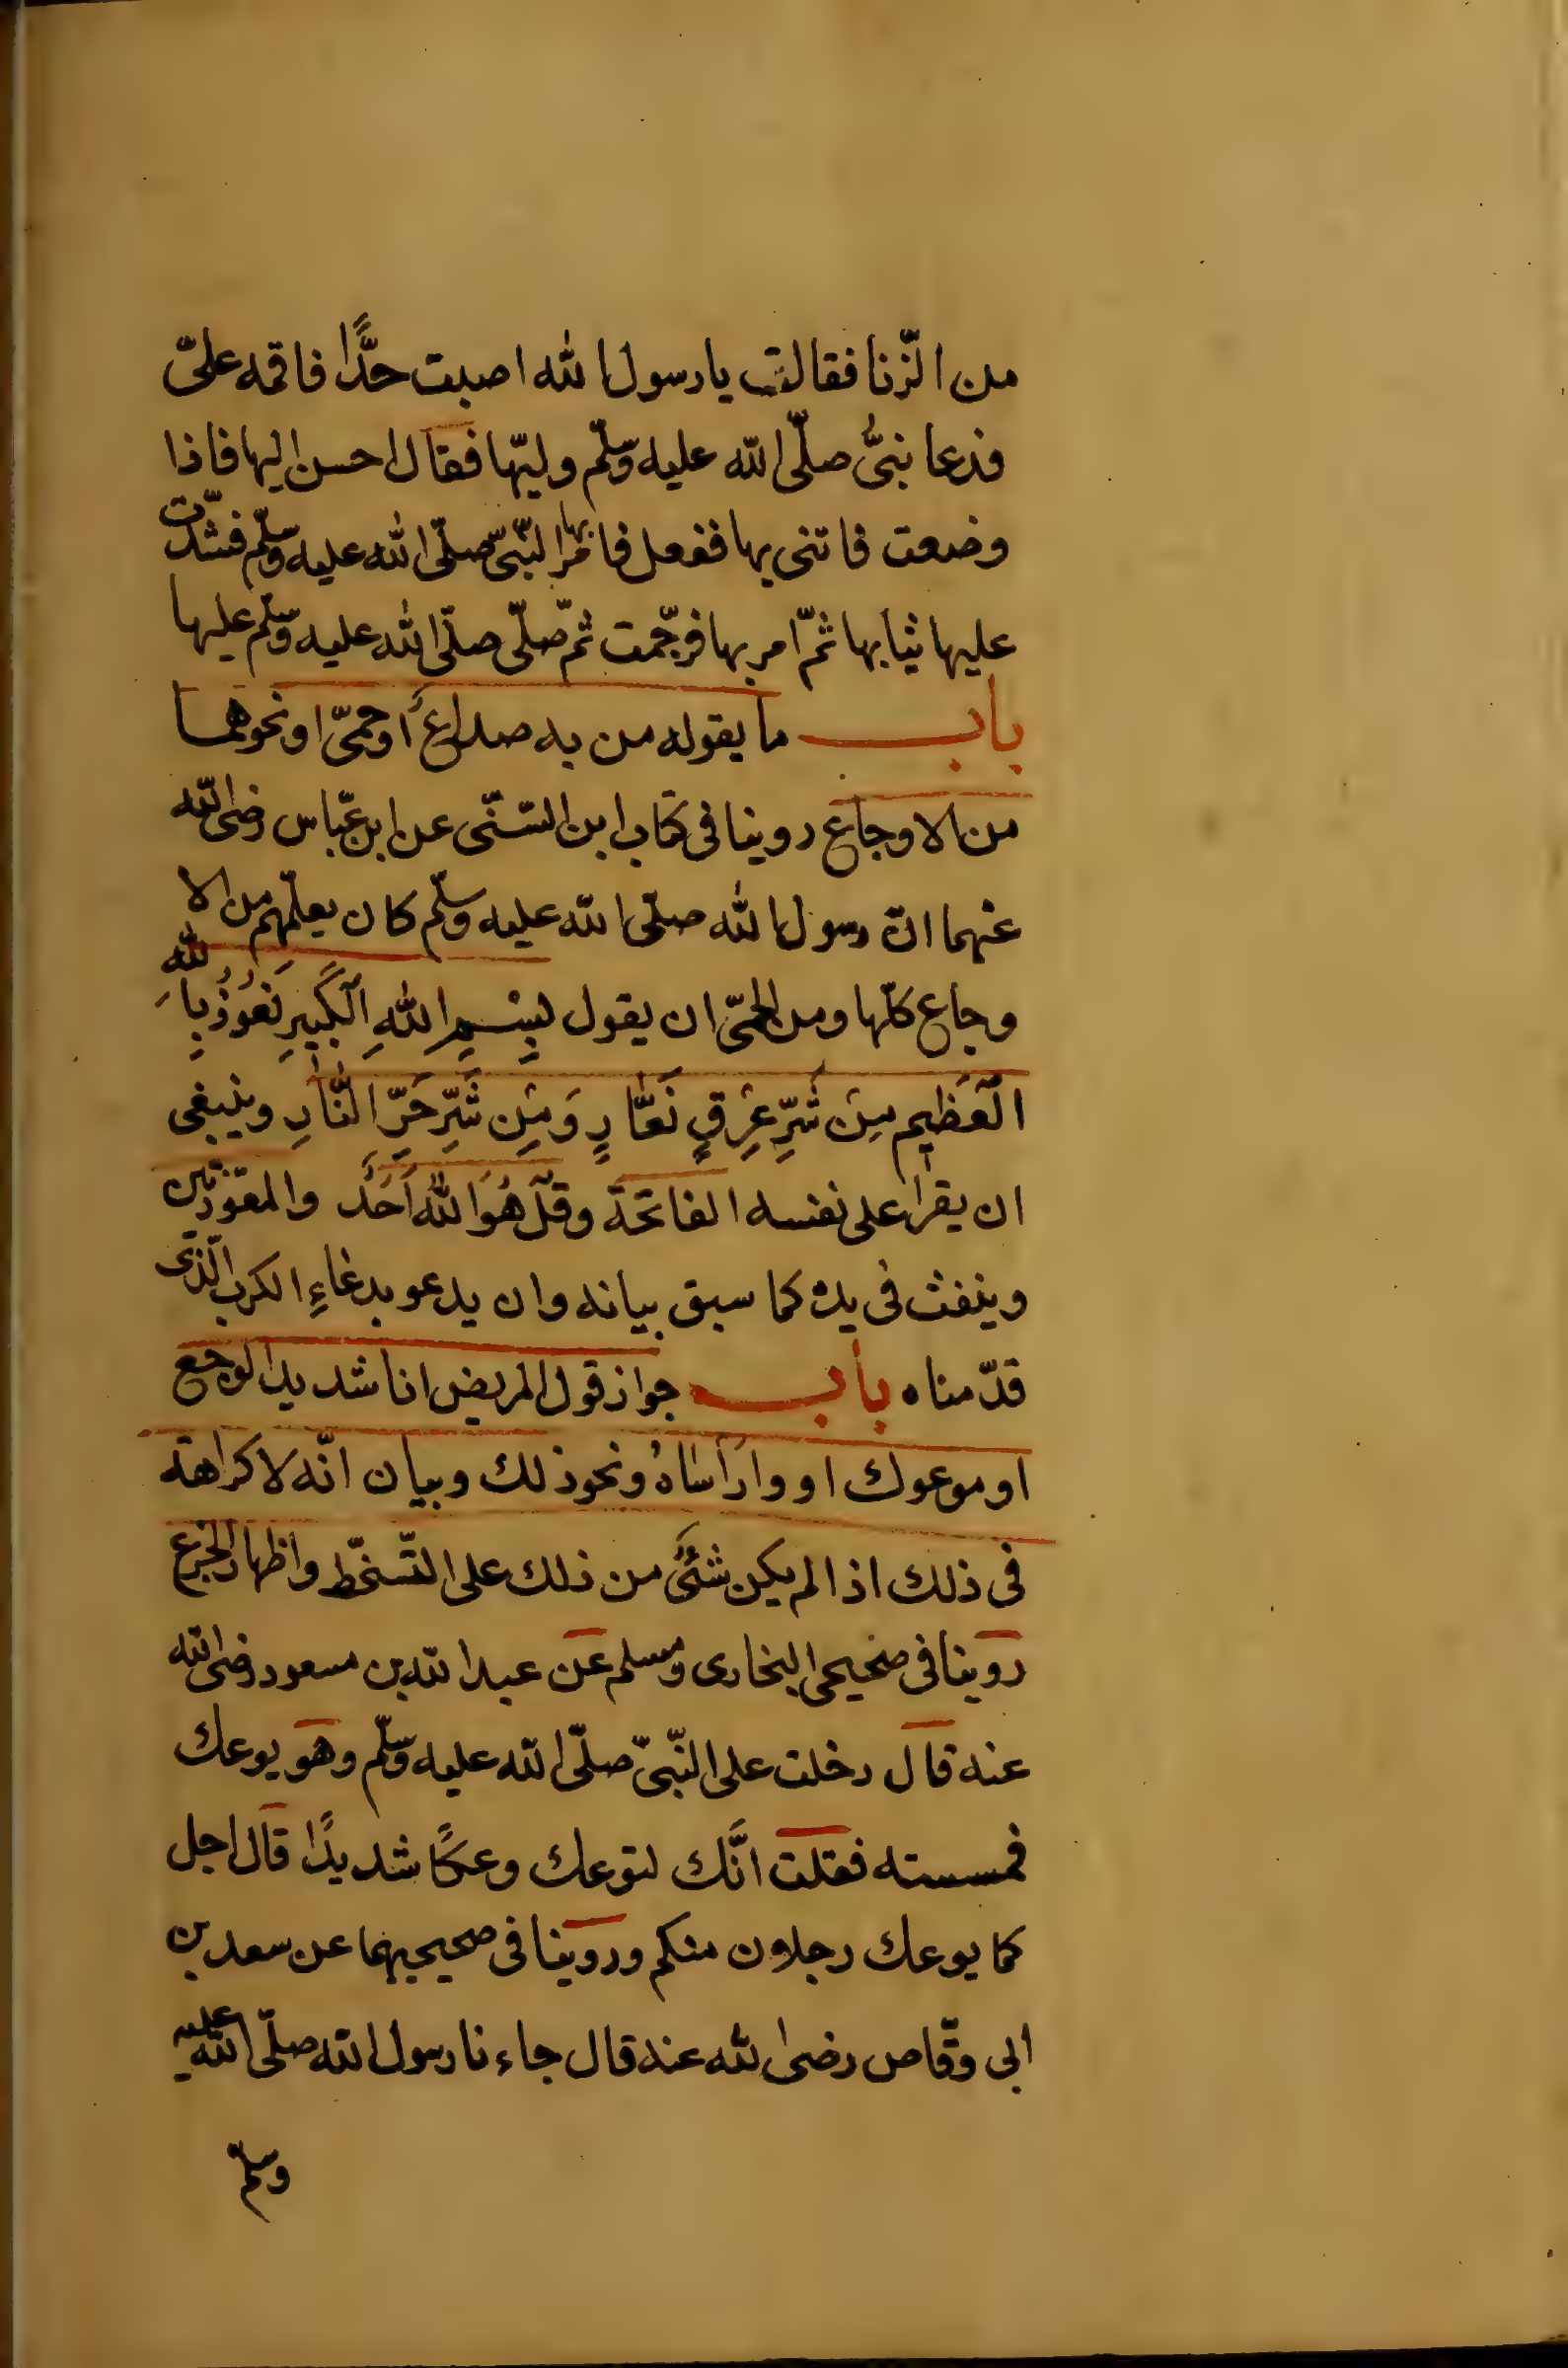 من الزّنا فقالت يا رسول الله اصبت حدًّا فاقمه علىّ
فدعا نبىُّ صلّى الله عليه وسلّم وليّها فقال احسن اليها فاذا
وضعت فاتنى بها ففعل فامر بها النّبىّ صلّى الله عليه وسلّم فشدّت
عليها ثيابها ثمّ امر بها فرجمت ثمّ صلّى صلّى الله عليه وسلّم عليها
باب ما يقوله من به صداع أو حمّى او نحوهما
من الاوجاع روينا فى كتاب ابن السّنّى عن ابن عبّاس رضى الله
عنهما انّ رسول الله صلّى الله عليه وسلّم كان يعلّمهم من الا
وجاع كلّها ومن الحمّى ان يقول بِسْمِ اللهِ الْكَبِيرِ نَعُوذُ بِاللهِ
الْعَظِيمِ مِنْ شَرِّ عِرْقٍ نَعَّارٍ وَمِنْ شَرِّ حَرِّ النَّارِ وينبغى
ان يقرا على نفسه الفاتحة وقُلْ هُوَ اللهُ اَحَدٌ والمعوّذتين
وينفث فى يده كما سبق بيانه وان يدعو بدعاءِ الكرب الّذى
قدّمناه باب جواز قول المريض انا شديد الوجع
او موعوك او وارَأساهُ ونحو ذلك وبيان انّه لا كراهة
فى ذلك اذا لم يكن شئىٌ من ذلك على التّسخّط واظهار الجزع
روينا فى صحيحى البخارى ومسلم عن عبد الله بن مسعود رضى الله
عنه قال دخلت على النّبىّ صلّى الله عليه وسلّم وهو يوعك
فمسسته فقلت انَّك لتوعك وعكًا شديدًا قال اجل
كما يوعك رجلان منكم وروينا فى صحيحيهما عن سعد بن
ابى وقّاص رضى الله عنه قال جاءنا رسول الله صلّى الله عليه
وسلّم